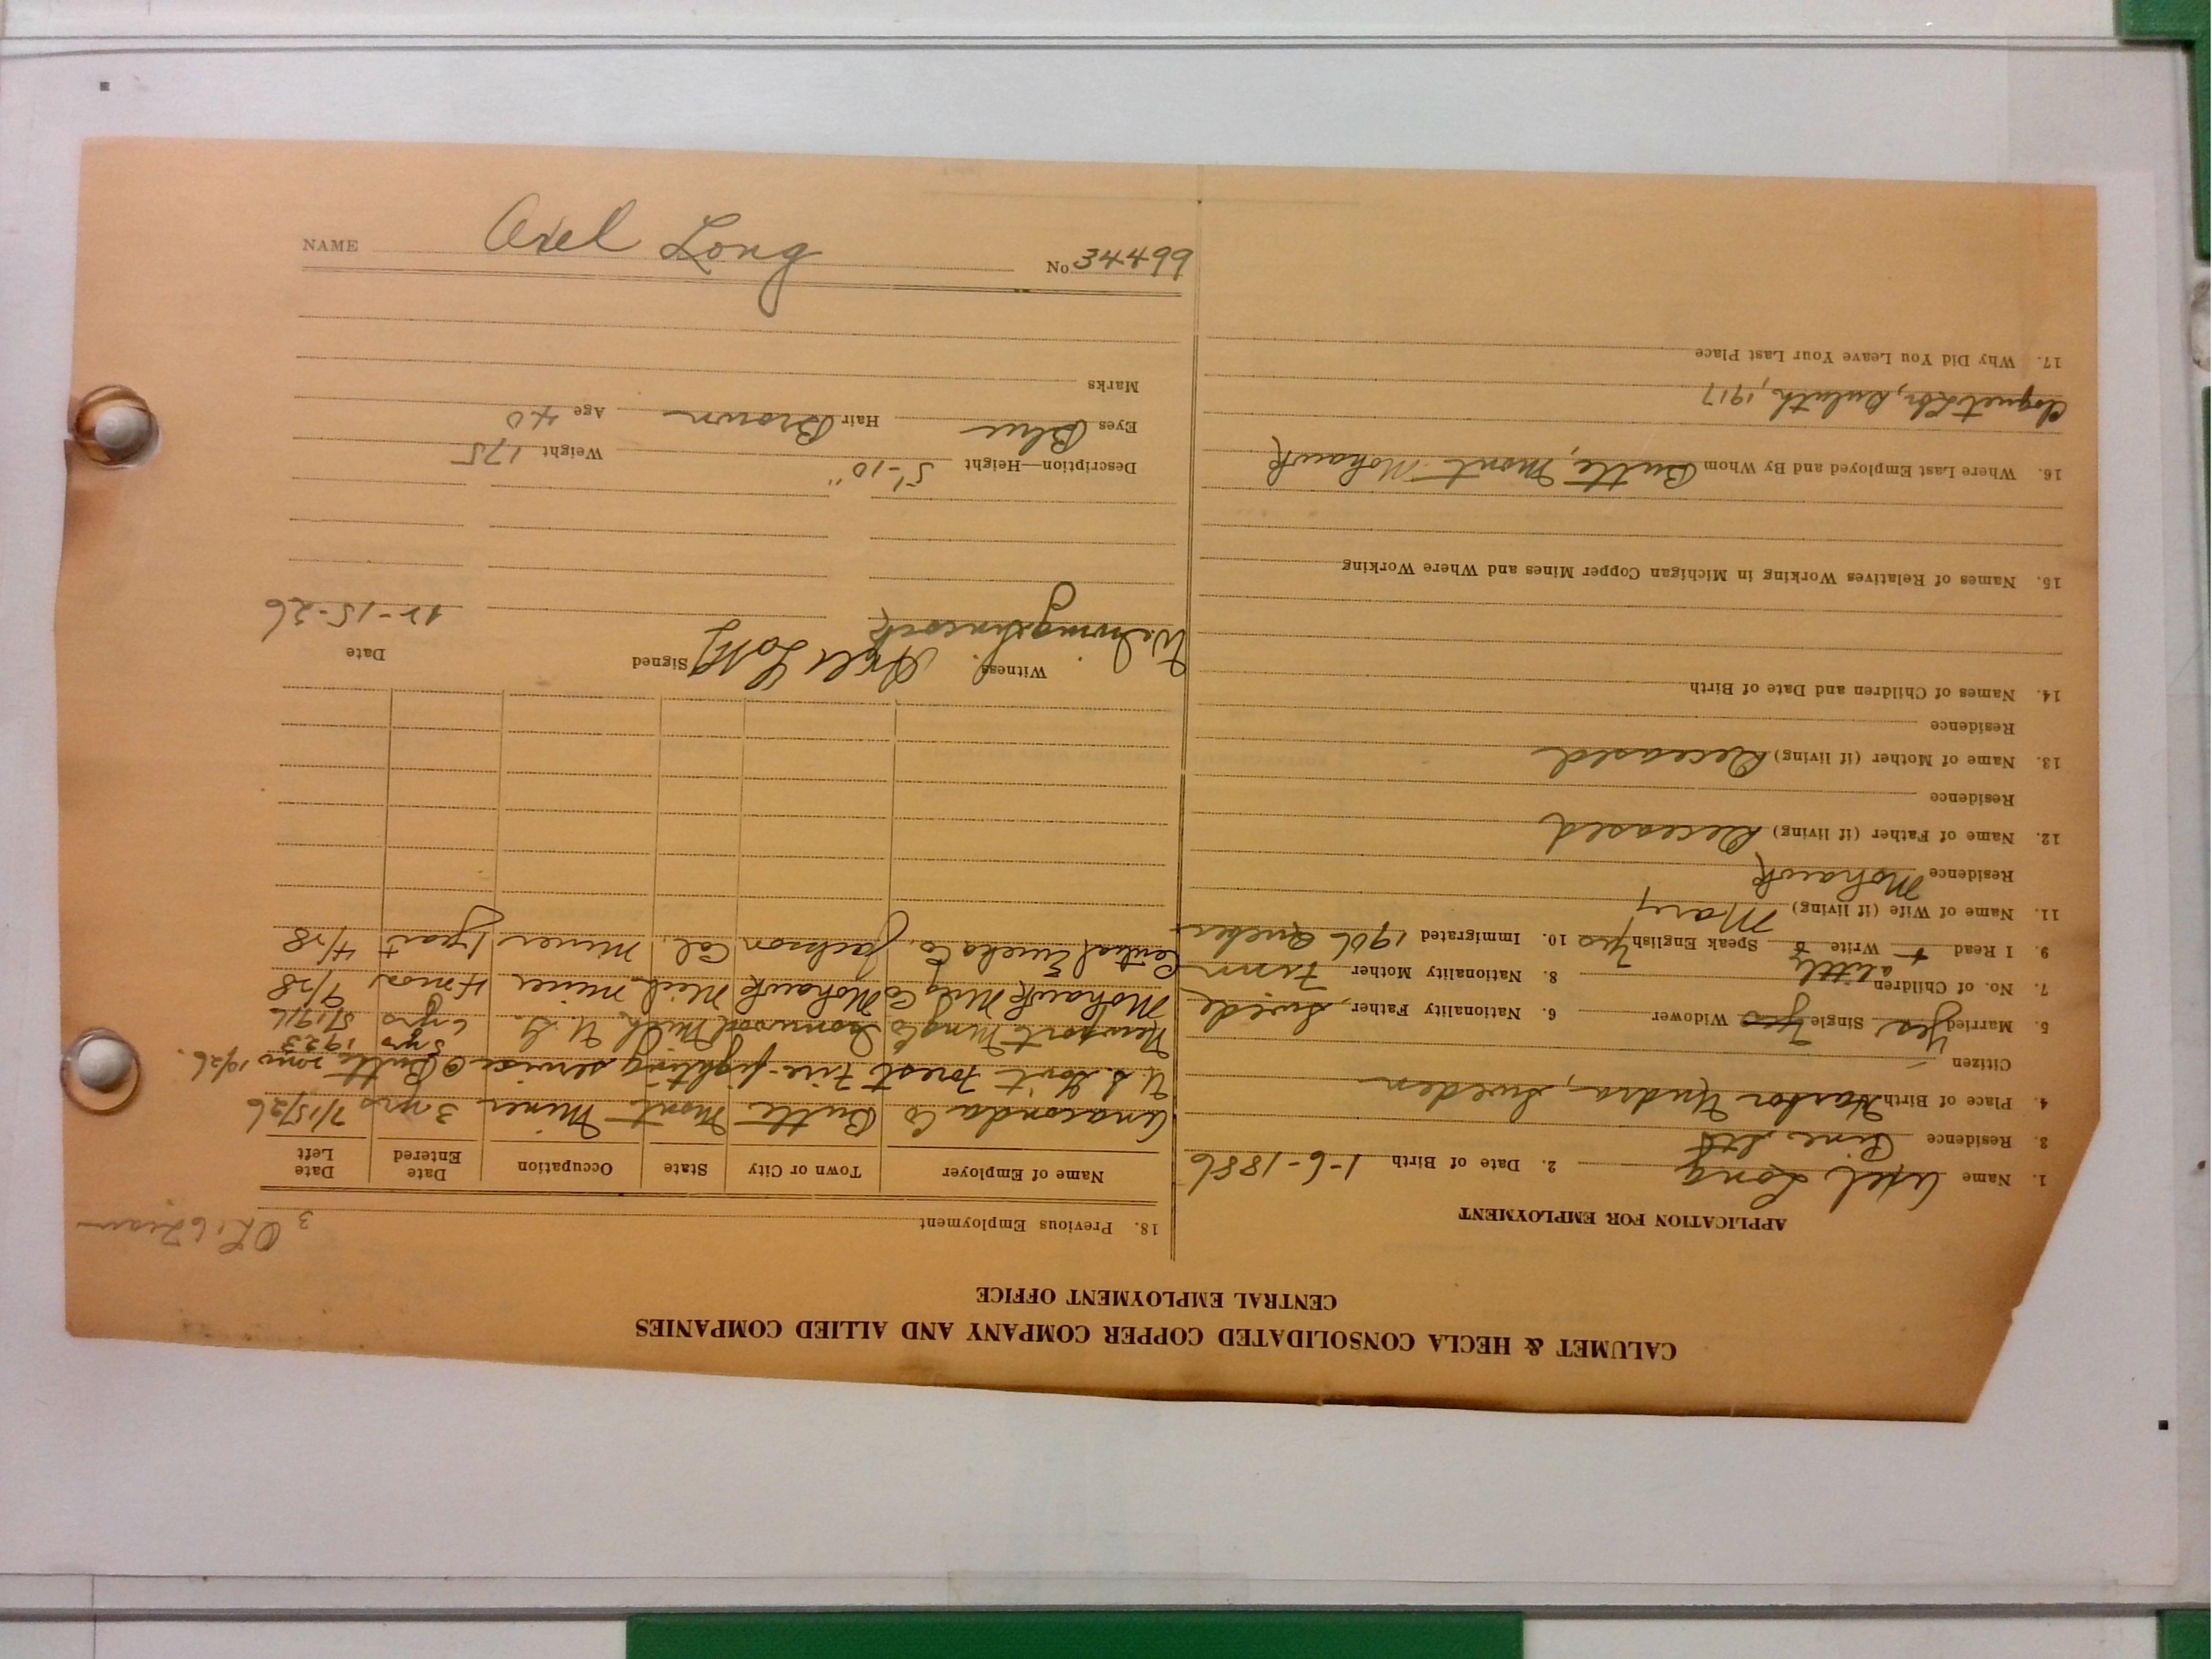 CALUMET & HECLA CONSOLIDATED COPPER COMPANY AND ALLIED COMPANIES
CENTRAL EMPLOYMENT OFFICE
APPLICATION FOR EMPLOYMENT
1. Name Axel Long 2. Date of Birth 1-6-1886
3. Residence Pine St
4. Place of Birth Harbor Sweden
Citizen
5. Married Yes Single Yes Widower 6. Nationality Father Swede
7. No. of Children 8. Nationality Mother Finn
a little
9. I Read Write Speak English Yes 10. Immigrated 1906 Quebec
11. Name of Wife (if living) Mary
Residence Mohawk
12. Name of Father (if living) Deceased
Residence
13. Name of Mother (if living) Deceased
Residence
14. Names of Children and Date of Birth
15. Names of Relatives Working in Michigan Copper Mines and Where Working
16. Where Last Employed and By Whom Butte, Mont Mohawk
Cloquet Lbr, Duluth, 1917
17. Why Did You Leave Your Last Place
18. Previous Employment
3
Name of Employer Town or City State Occupation Date Entered Date Left
Anaconda Co Butte Mont Miner 3 yrs 7/15/26
U.S. Govt Forest Fire-fighting service @ Butte 10/26.
3 yrs 1923
Newport Mng Co Ironwood Mich U.G. 6 yrs 5/1916
Mohawk Mng Co Mohawk Mich miner 4 mos 9/28
Central Eureka Co. Jackson Cal. miner 1 year 4/28
Witness Signed Date
Axel Long 12-15-26
Description—Height 5'-10" Weight 175
Eyes Blue Hair Brown Age 40
Marks
NAME Axel Long No 34499